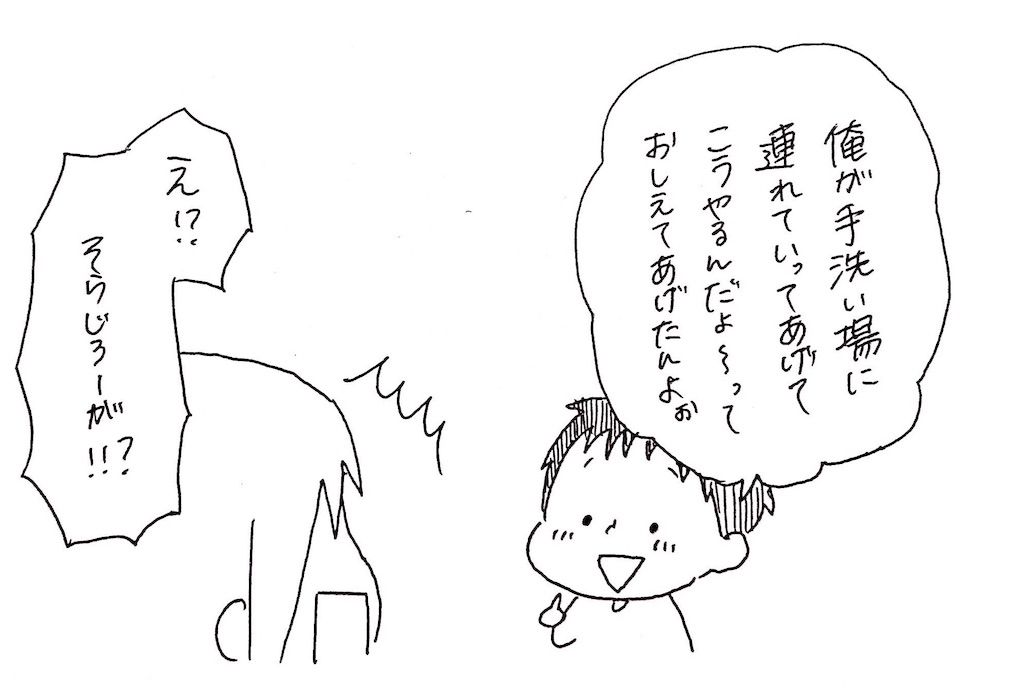 俺が手洗い場に
連れていってあげて
こうやるんだよ〜って
おしえてあげたんよぉ
え!?
そらじろーが!!?